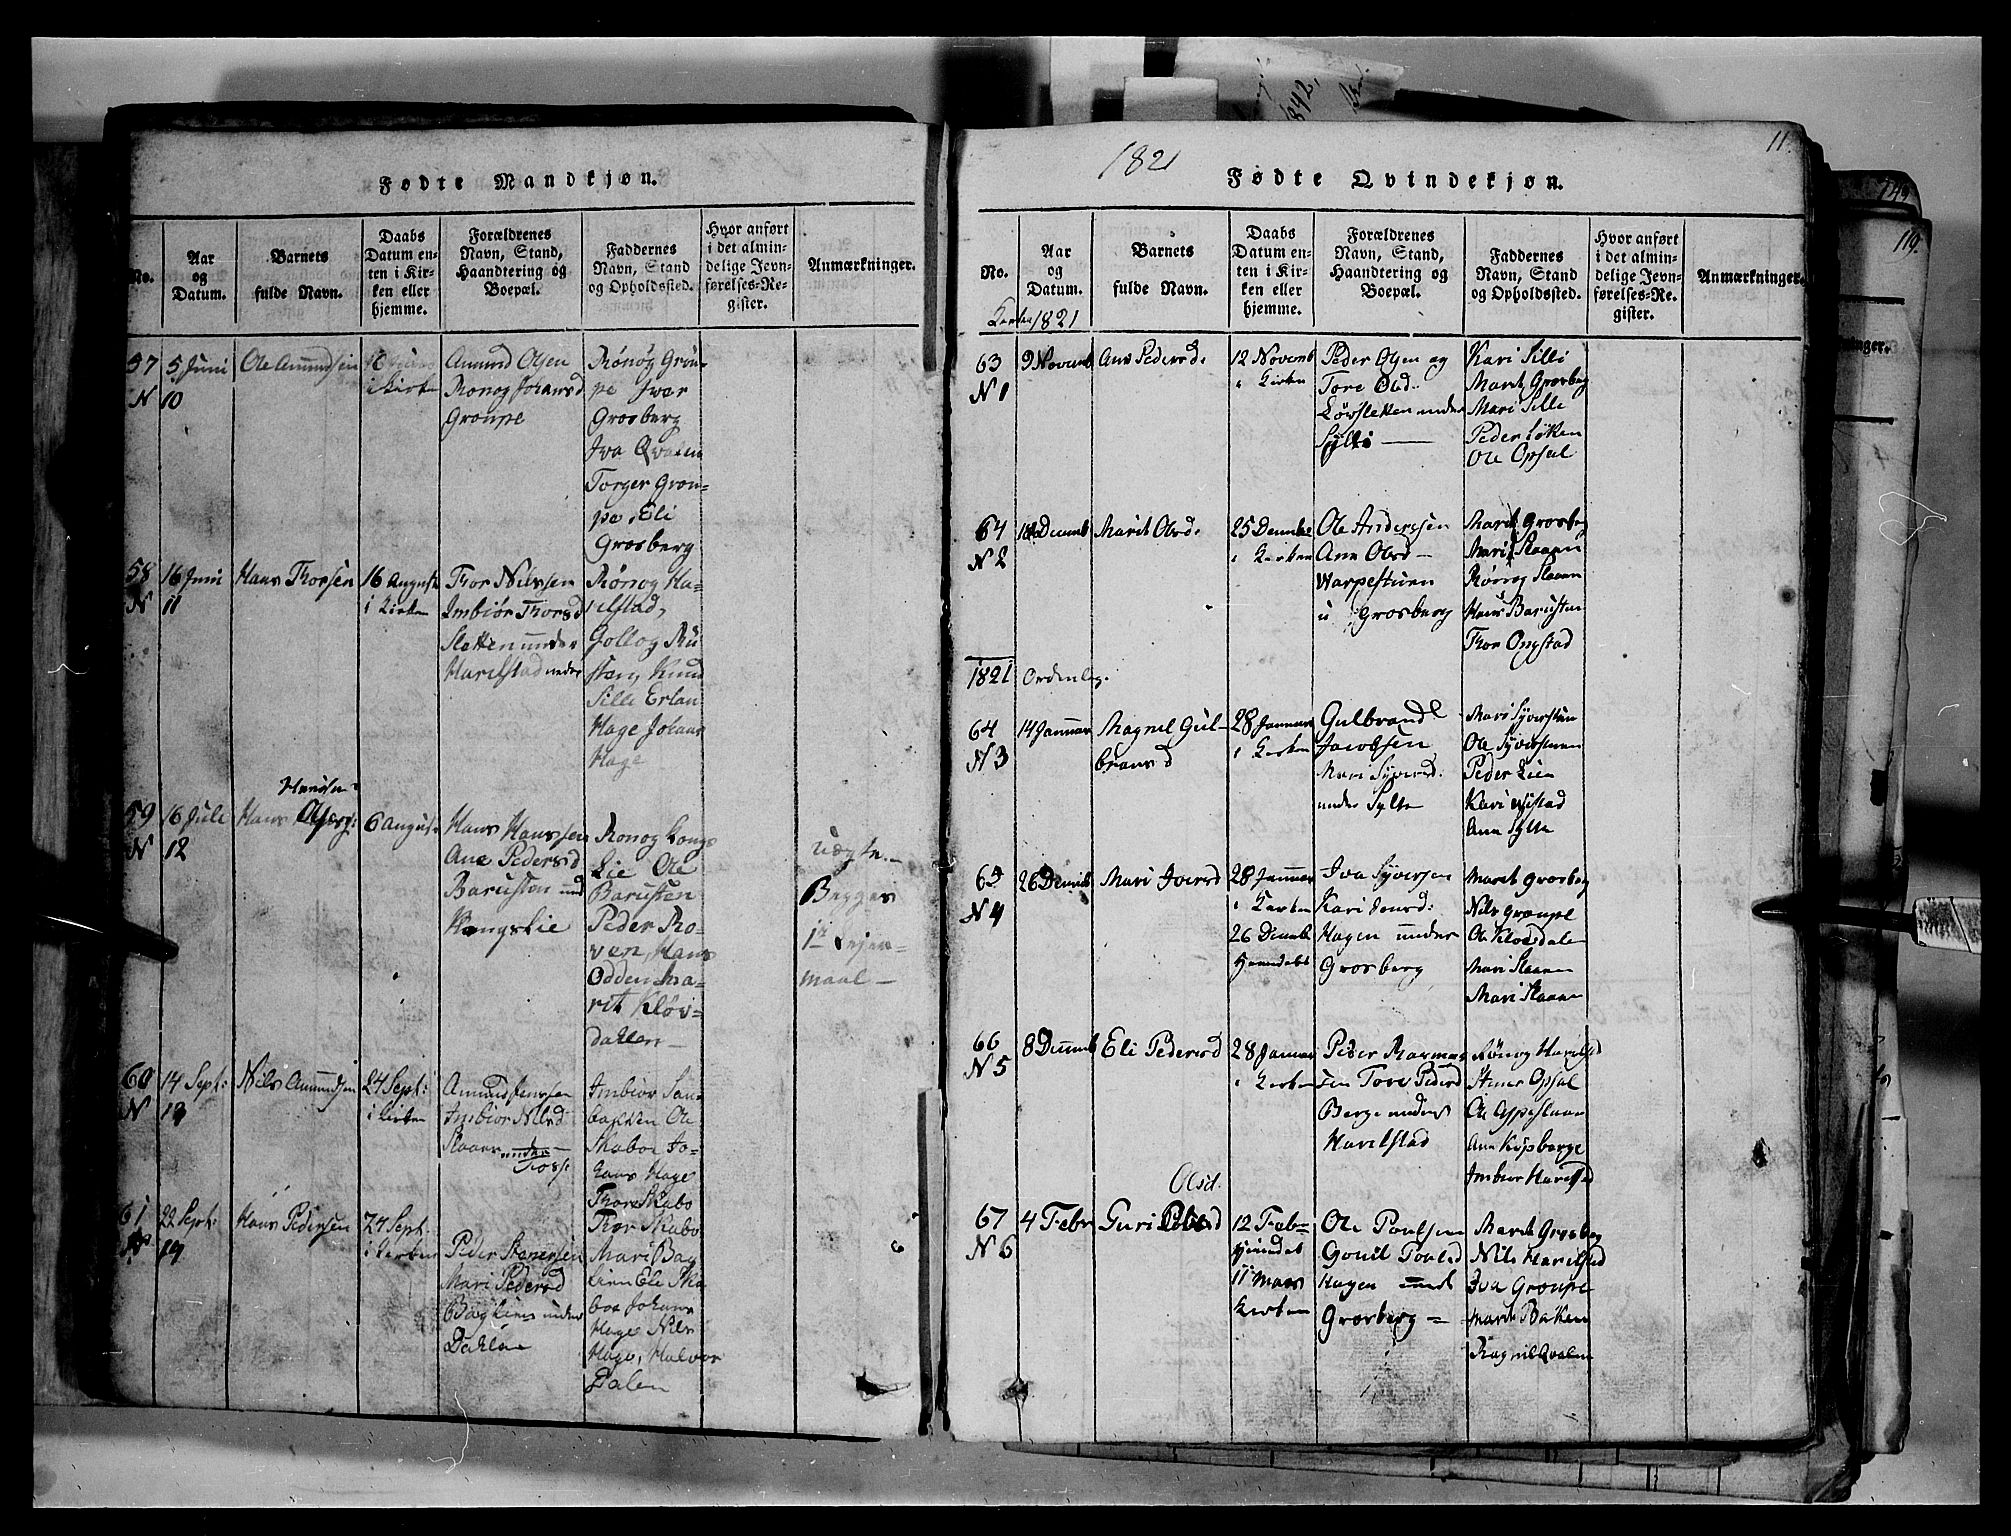 Fødte Mandkjøn.
No.
Aar
og
Datum.
Barnets
fulde Navn.
Daabs
Datum en-
ten i Kir-
ken eller
hjemme.
Forældrenes
Navn, Stand,
Haandtering og
Boepæl.
Faddernes
Navn, Stand
og Opholdsted.
Hvor anført
i det almin-
delige Jevn-
førelses-Re-
gister.
Anmærkninger.
57
N 10
5 Juni
Ole Amundsen
i Kirken
Amund Olsen
Ronog Johansd
Groupe
Rønog Grou-
pe Ivar
Grosberg
Iva Qvalen
Torger Grou-
pe, Eli
Grosberg
58
N 11
16 Juni
Hans Thorsen
16 August
i Kirken
Thor Nilssen
Imbiør Thorsd
Sletten under
Harilstad
Rønog Ha-
rilstad,
Gollog Ru-
sten, Knud
Sille Erlan
Hage Johans
Hage
59
N 12
16 Jule
Hansen
Hans
6 August
Hans Hanssen
Ane Pedersd
Barusten und
Kongslie
Ronog Kongs
Lie Ole
Barusten
Peder Ro-
ven, Hans
Odden Ma-
rit Kløv-
dahlen
Uægte.
Begges
1te Lejer-
maal
60
N 13
14 Sept:
Nils Amundsen
24 Sept:
i Kirken
Amund Jenssen
Imbior Nilsd
Slaaen under
Imbior San-
bakken Ole
Skaboe Jo-
hans Hage
Thor Skabo
61
N 14
22 Sept:
Hans Pedersen
24 Sept:
i Kirken
Peder Stenersen
Mari Pedersd
Baglien under
Dahlen
Thor Skabo
Mari Bag
Lien Eli Ska
boe Johans
Hage Nils
Hage, Halvor
Dalen
1821
11
Fødte Qvindekjøn.
No.
Aar
og
Datum.
Barnets
fulde Navn.
Daabs
Datum en-
ten i Kir-
ken eller
hjemme.
Forældrenes
Navn, Stand,
Haandtering og
Boepæl.
Faddernes
Navn, Stand
og Opholdsted.
Hvor anført
i det almin-
delige Jevn-
førelses-Re-
gister.
Anmærkninger.
1821
63
N 1
9 Novemb
Ane Pedersd.
12 Novemb
i Kirken
Peder Olsen og
Tore Olsd.
Løvsletten under
Sylte
Kari Sille
Marit Grosberg
Mari Sille
Peder Løken
Ole Opsal
64
N 2
18 Decemb
Marit Olsd.
25 Decemb
i Kirken
Ole Anderssen
Ane Olsd
Harpestuen
u Grosberg
Marit Grosberg
Mari Slaaen
Rønog Slaaen
Hans Barusten
Thor Ongstad
1821
Ordentlig.
64
N 3
14 Januar
Magnil Gul-
bransd
28 Januar
i Kirken
Gulbrand
Jacobsen
Mari Syversd:
under Sylte
Mari Syverstuen
Ole Syverstuen
Peder Lien
Kari
Ane Sylte
65
N 4
26 Decemb
Mari Iversd
28 Januar
i Kirken
26 Decemb
Hiemdøbt
Iva Syversen
Kari Jensd:
Hagen under
Grosberg
Marit Grosberg
Nils Groupe
Ole Klovdale
Mari Slaaen
Mari Slaaen
66
N 5
8 Decemb
Eli Pedersd
28 Januar
i Kirken
Peder Rasmus
sen Tore Pedersd
Berge under
Harilstad
Rønog Harilstad
Stener Opsal
Ole Oppeslaaen
Ane Kipberge
Imbior Harilstad
67
N 6
4 Febr
Olsd.
Guri
12 Feb-
Hiemdøbt
11 Mars
Kirken
Ole Poulsen
Gouil Poulsd
Hagen und
Grosberg
Marit Grosberg
Nils Harilstad
Iva Groupe
Marit Bakken
Ragnil Qvalen
149
119.
ninger.
1842,